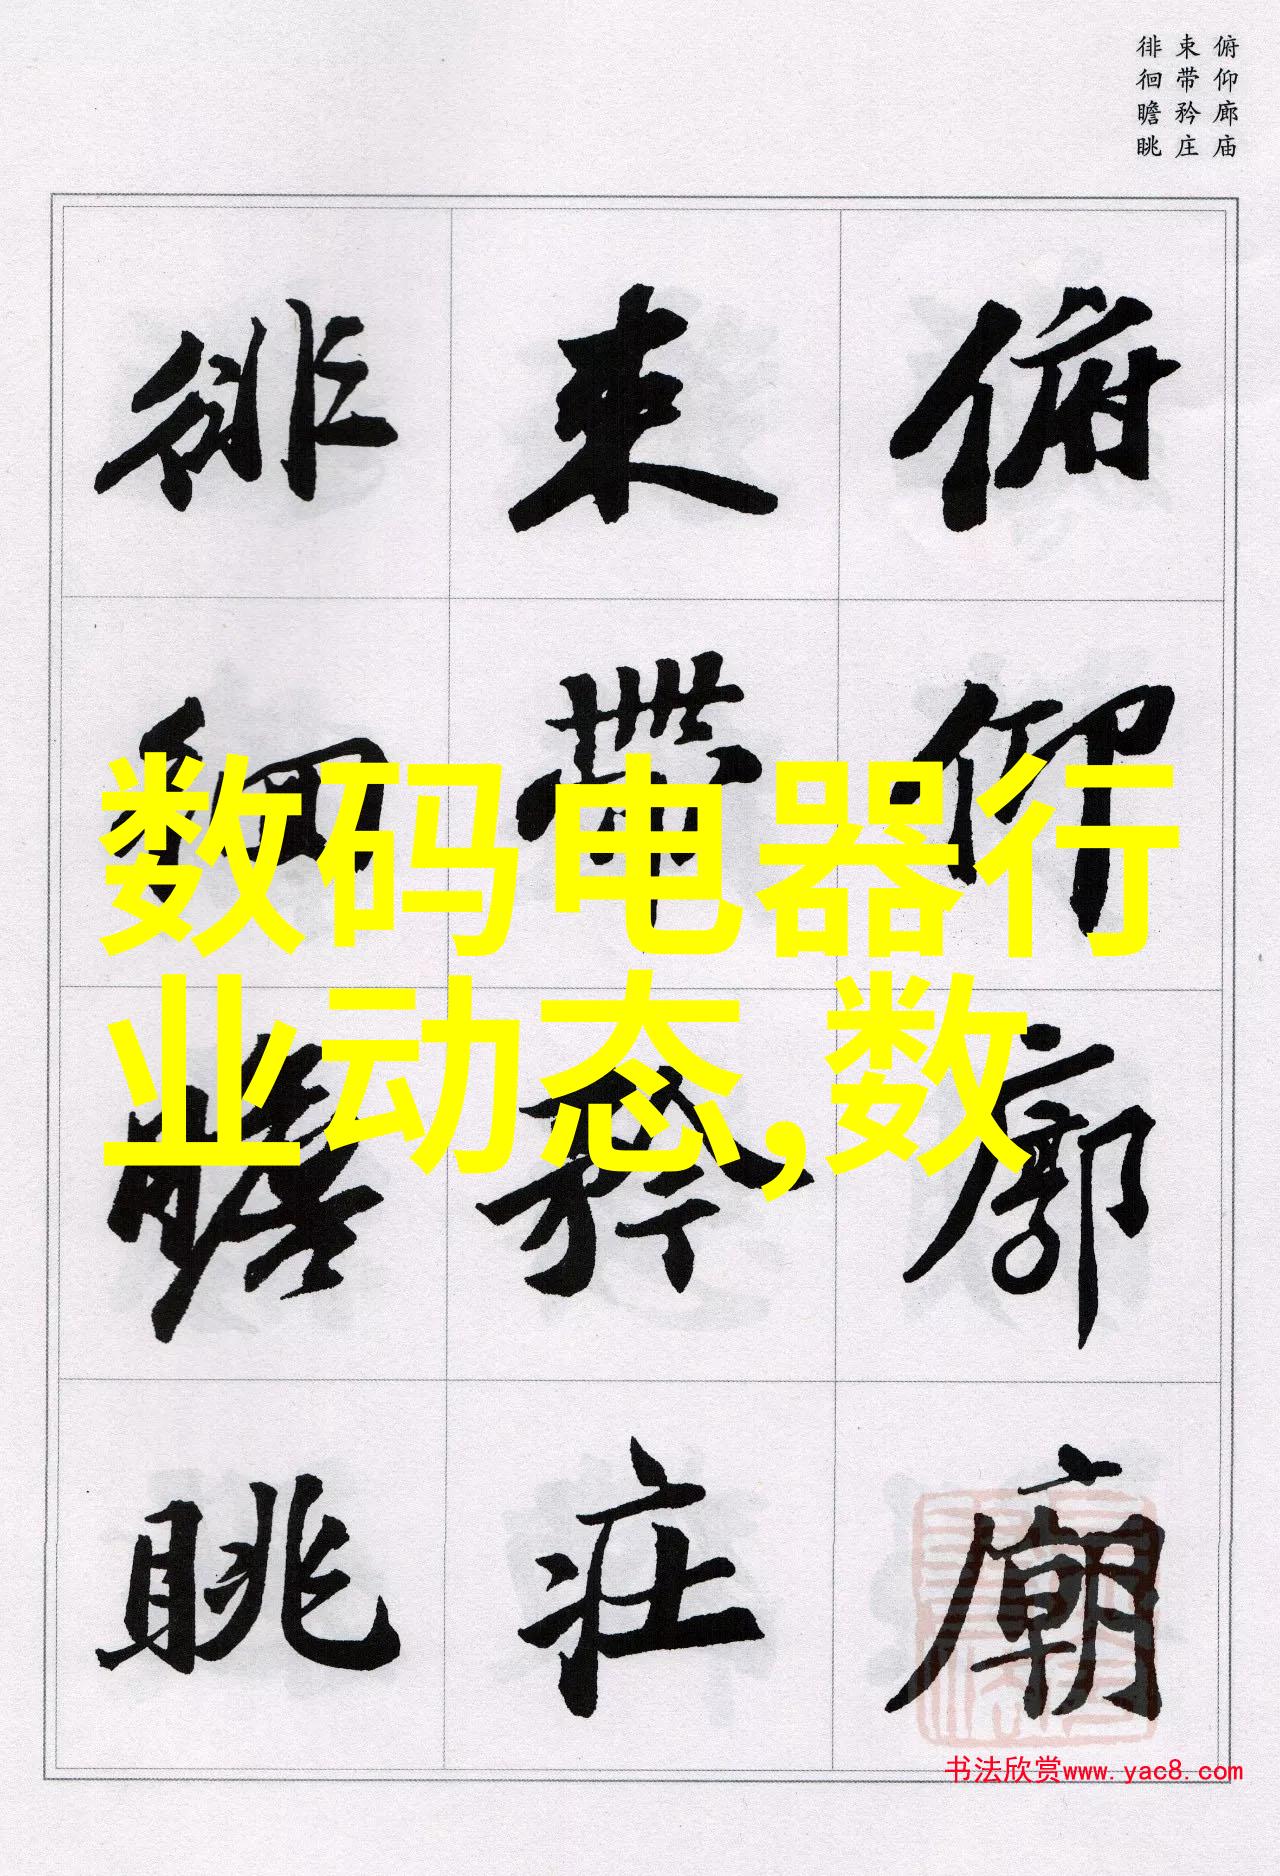 俯仰廊庙
束带矜庄
徘徊瞻眺
俯仰廊廟
束帶矜莊
徘徊瞻眺
数码电器行
业动态,数
书法欣赏www.yac8.com